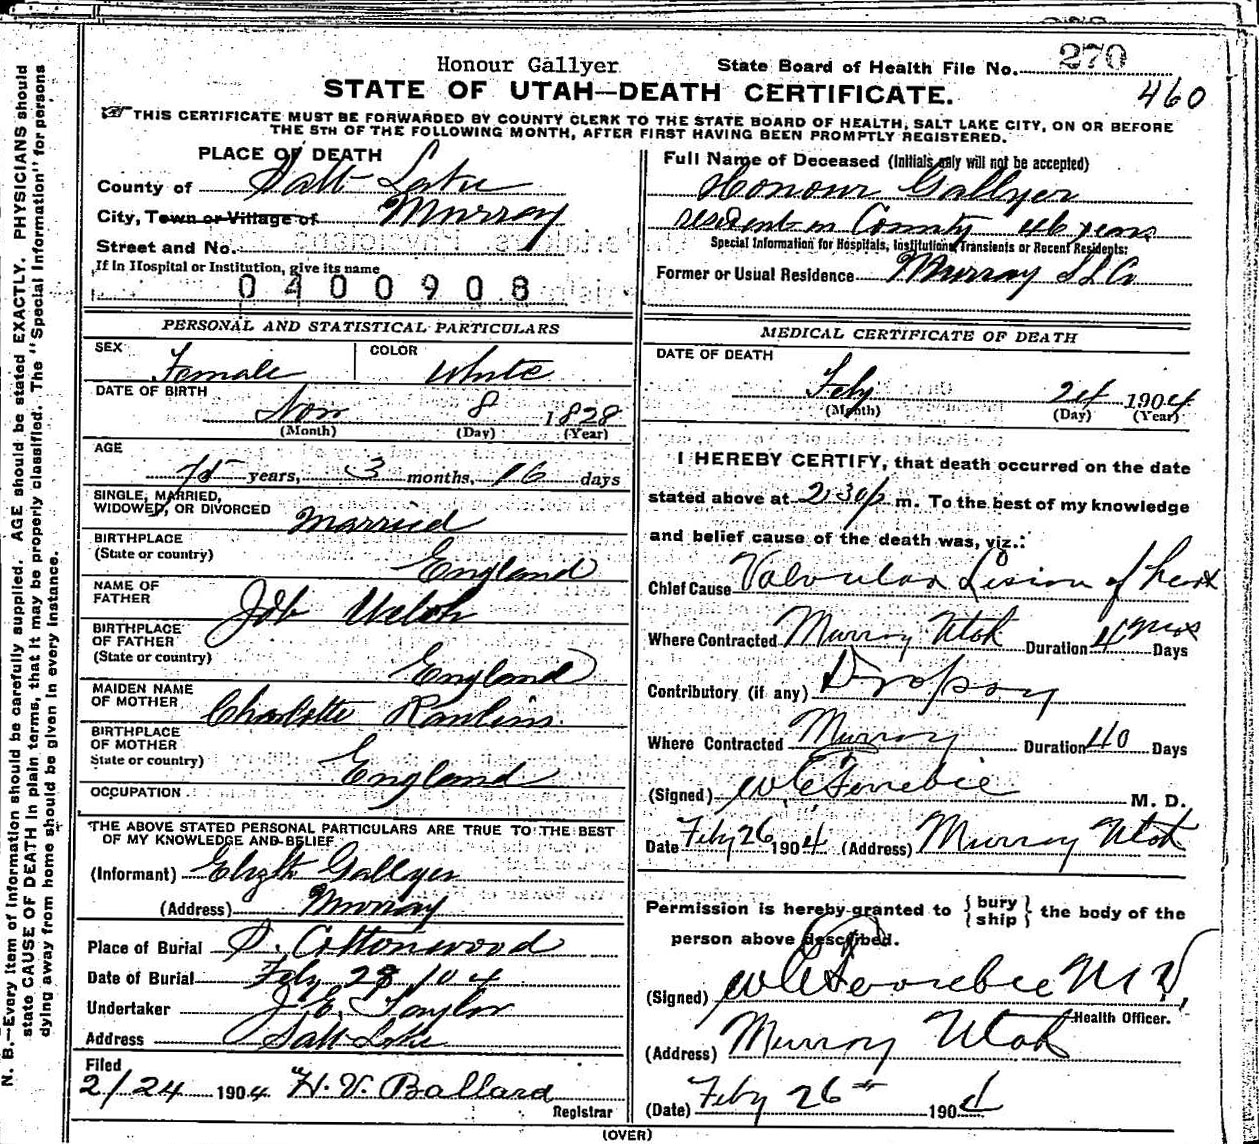 Honour Gallyer
State Board of Health File No. 270
460
STATE OF UTAH—DEATH CERTIFICATE.
THIS CERTIFICATE MUST BE FORWARDED BY COUNTY CLERK TO THE STATE BOARD OF HEALTH, SALT LAKE CITY, ON OR BEFORE
THE 5TH OF THE FOLLOWING MONTH, AFTER FIRST HAVING BEEN PROMPTLY REGISTERED.
PLACE OF DEATH
County of Salt Lake
City, Town or Village of Murray
Street and No.
If in Hospital or Institution, give its name
0400908
Full Name of Deceased (Initials only will not be accepted)
Honour Gallyer
resident in County 46 years
Special Information for Hospitals, Institutions, Transients or Recent Residents:
Former or Usual Residence Murray S L Co
PERSONAL AND STATISTICAL PARTICULARS
SEX Female COLOR White
DATE OF BIRTH
Nov 8 1828
(Month) (Day) (Year)
AGE
75 years, 3 months, 16 days
SINGLE, MARRIED,
WIDOWED, OR DIVORCED Married
BIRTHPLACE
(State or country) England
NAME OF
FATHER Job Welch
BIRTHPLACE
OF FATHER
(State or country) England
MAIDEN NAME
OF MOTHER Charlotte Rawlins.
BIRTHPLACE
OF MOTHER
State or country) England
OCCUPATION
THE ABOVE STATED PERSONAL PARTICULARS ARE TRUE TO THE BEST
OF MY KNOWLEDGE AND BELIEF
(Informant) Elizth Gallyer
(Address) Murray
Place of Burial S. Cottonwood
Date of Burial Feby 28 / 04
Undertaker J. E. Taylor
Address Salt Lake
Filed
2/24 1904. H. V. Ballard
Registrar
MEDICAL CERTIFICATE OF DEATH
DATE OF DEATH
Feby 24 1904
(Month) (Day) (Year)
I HEREBY CERTIFY, that death occurred on the date
stated above at 2:30 p m. To the best of my knowledge
and belief cause of the death was, viz.:
Chief Cause Valvular Lision of heart
Where Contracted Murray Utah Duration mos Days
Contributory (if any) Dropsy
Where Contracted Murray Duration 40 Days
(Signed) W C Ferrebie M. D.
Date Feby 26 1904 (Address) Murray Utah
Permission is hereby granted to { bury
ship } the body of the
person above described.
(Signed) W C Ferrebie M D,
Health Officer.
(Address) Murray Utah
(Date) Feby 26th 1904
(OVER)
N. B.—Every item of information should be carefully supplied. AGE should be stated EXACTLY. PHYSICIANS should
state CAUSE OF DEATH in plain terms, that it may be properly classified. The "Special Information" for persons
dying away from home should be given in every instance.